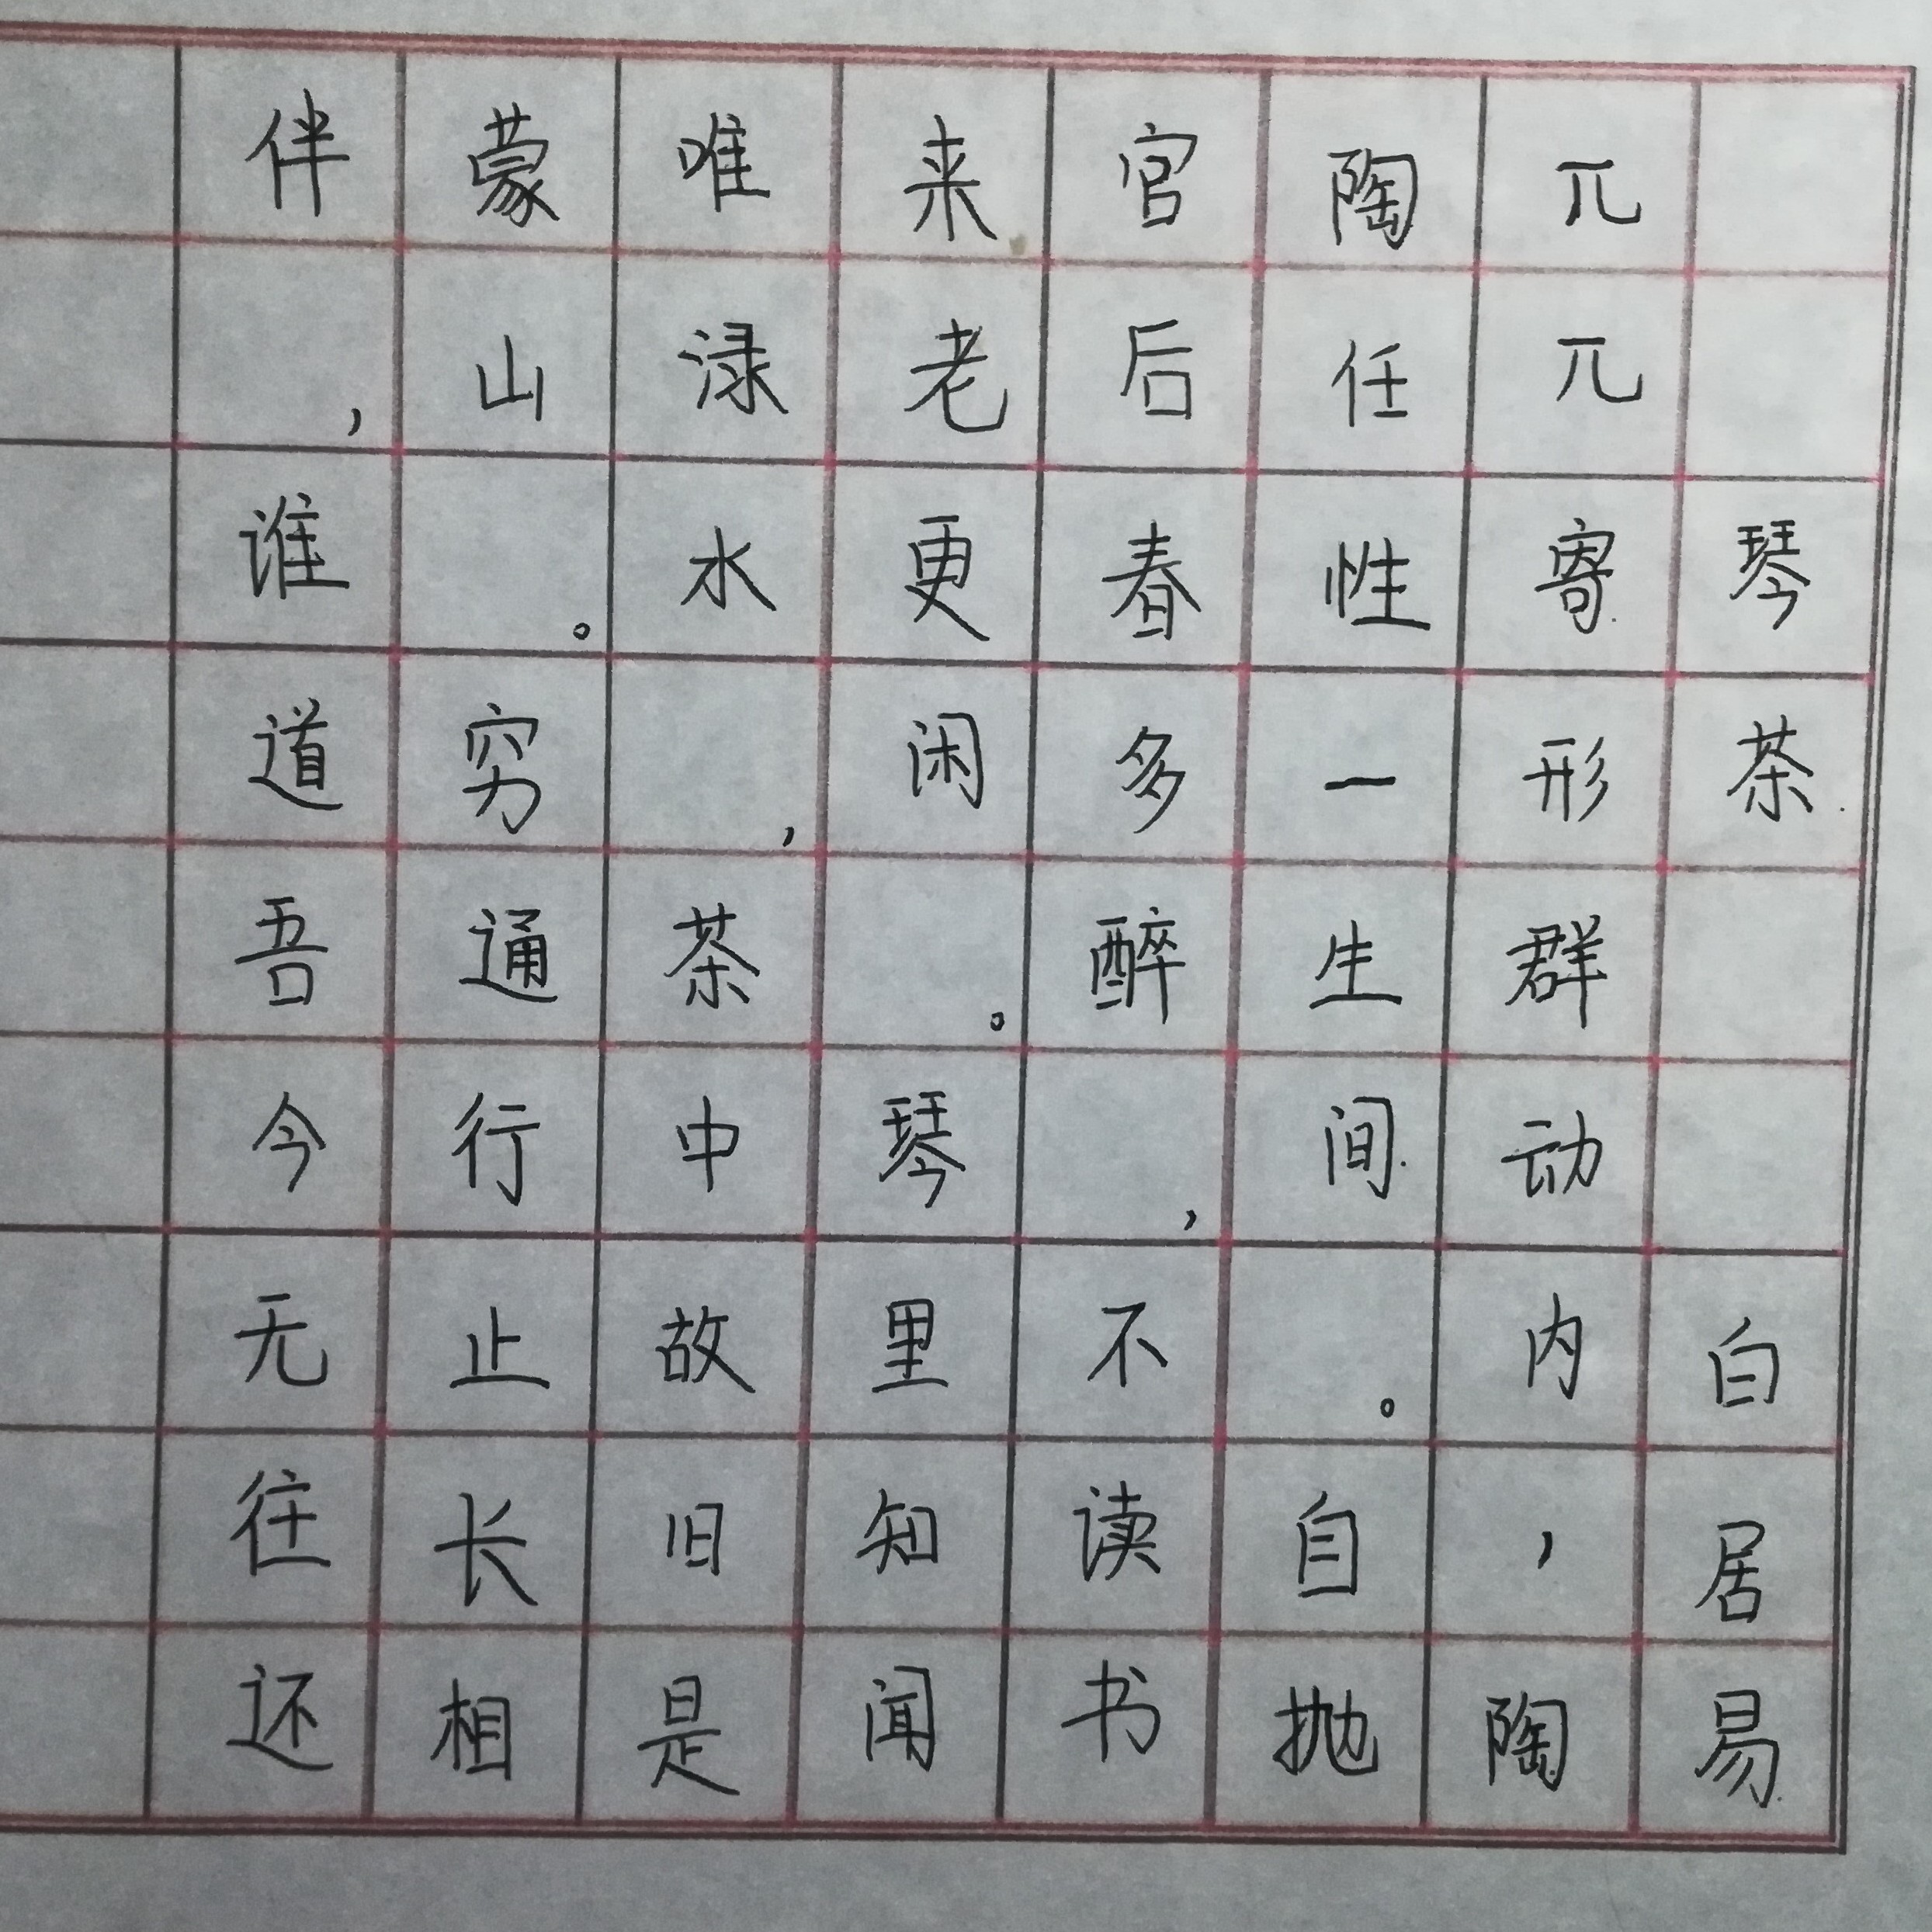 琴茶 白居易
兀兀寄形群动内，陶
陶任性一生间。自抛
官后春多醉，不读书
来老更闲。琴里知闻
唯渌水，茶中故旧是
蒙山。穷通行止长相
伴，谁道吾今无往还